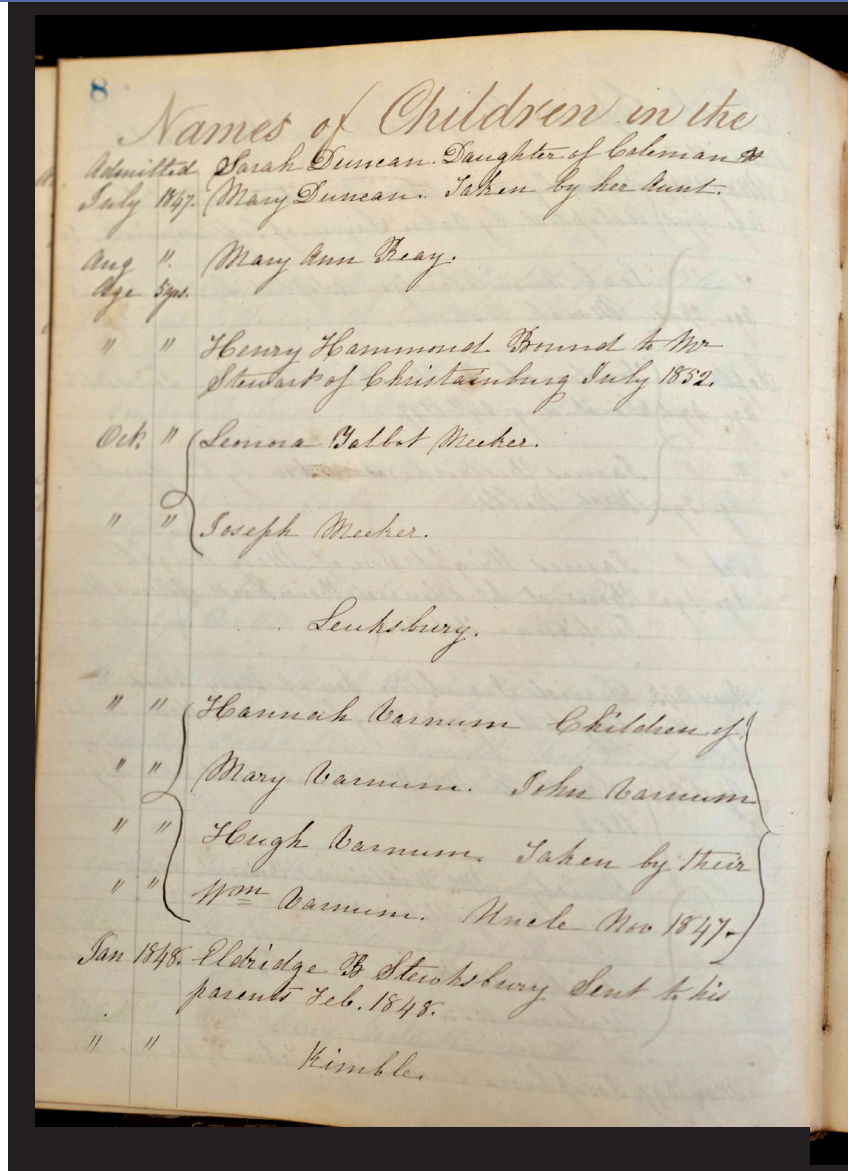 8
Names of Children in the
Admitted Sarah Duncan. Daughter of Coleman &
July 1847. Mary Duncan. Taken by her Aunt.
Aug ". Mary Ann Keay.
Age 5 yrs.
" " Henry Hammond Bound to Mr
Stewart of Christainburg July 1852.
Oct. " Leonora Talbot Meeker.
" " Joseph Meeker.
" " Hannah Varnum Children of
" " Mary Varnum. John Varnum
" " Hugh Varnum. Taken by their
" " Wm Varnum. Uncle Nov 1847.
Jan 1848. Eldridge B Stewksbury Sent to his
parents Feb. 1848.
" " Kimble.